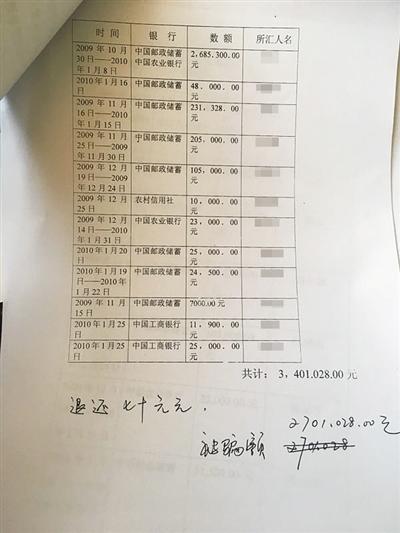 时 间 银 行 数 额 所汇人名
2009 年 10 月 中国邮政储蓄 2,685,300.00
30 日——2010 中国农业银行 元
年 1 月 8 日
2010 年1月 16 中国邮政储蓄 48,000.00
日 元
2009 年 11 月 中国邮政储蓄 231,328.00
16 日——2010 元
年 1 月 15 日
2009 年 11 月 中国邮政储蓄 205,000.00
25 日——2009 元
年 11 月 30 日
2009 年 12 月 中国邮政储蓄 105,000.00
19 日——2009 元
年 12 月 24 日
2009 年 12 月 农村信用社 10,000.00
25 日 元
2009 年 12 月 中国农业银行 23,000.00
14 日——2010 元
年 1 月 31 日
2010 年 1 月 20 中国邮政储蓄 25,000.00
日 元
2010 年 1 月 19 中国邮政储蓄 24,500.00
日——2010 年 元
1 月 22 日
2009 年 11 月 中国邮政储蓄 7000.00 元
15 日
2010 年 1 月 25 中国工商银行 11,900.00
日 元
2010 年 1 月 25 中国工商银行 25,000.00
日 元
共计: 3,401.028.00 元
退还 七十元元.
2701.028.00元
被骗额 2701.028